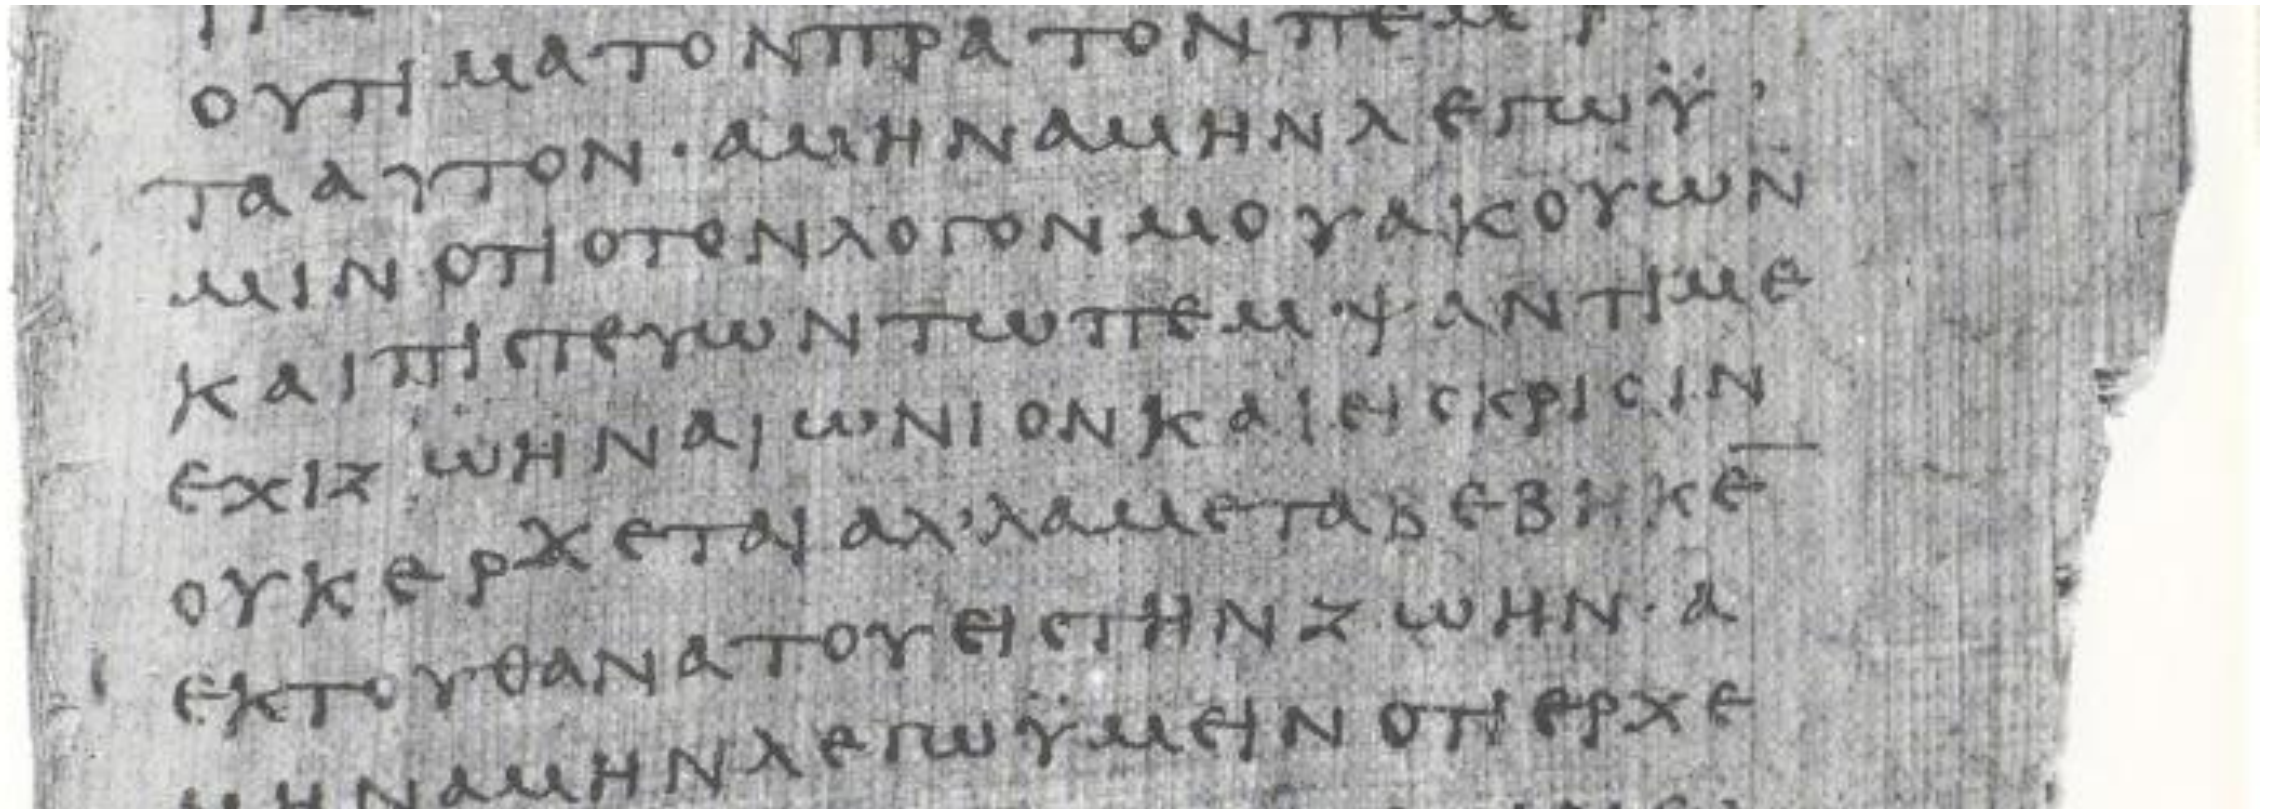 ουτιματονπρατονπεμ
τααυτον·αμηναμηνλεγωϋ
μινοτιοτονλογονμουακουων
καιπιϲτευωντωπεμψαντιμε
εχιζωηναιωνιονκαιειϲκριϲιν
ουκερχεταιαλ’λαμεταβεβηκε̅
εκτουθανατουειϲτηνζωην·α
μηναμηνλεγωϋμεινοτιερχε